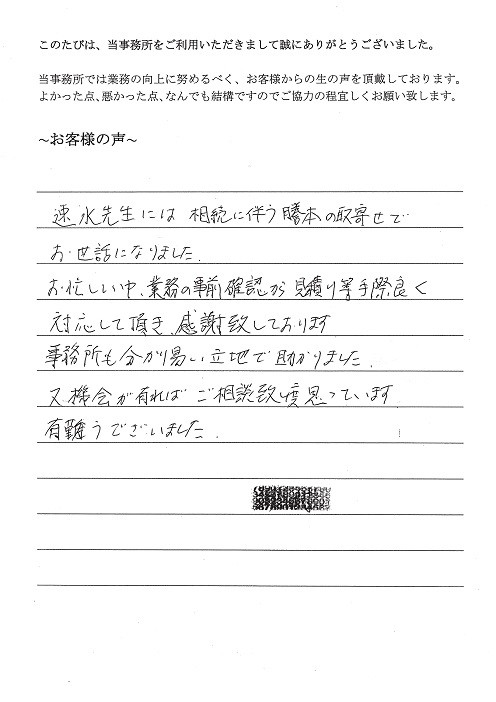 このたびは、当事務所をご利用いただきまして誠にありがとうございました。
当事務所では業務の向上に努めるべく、お客様からの生の声を頂戴しております。
よかった点、悪かった点、なんでも結構ですのでご協力の程宜しくお願い致します。
~お客様の声~
速水先生には 相続に伴う謄本の取寄せで
お世話になりました.
お忙しい中、業務の事前確認から見積り等手際良く
対応して頂き、感謝致しております
事務所も分かり易い立地で助かりました.
又機会が有れば ご相談致度思っています
有難うございました.